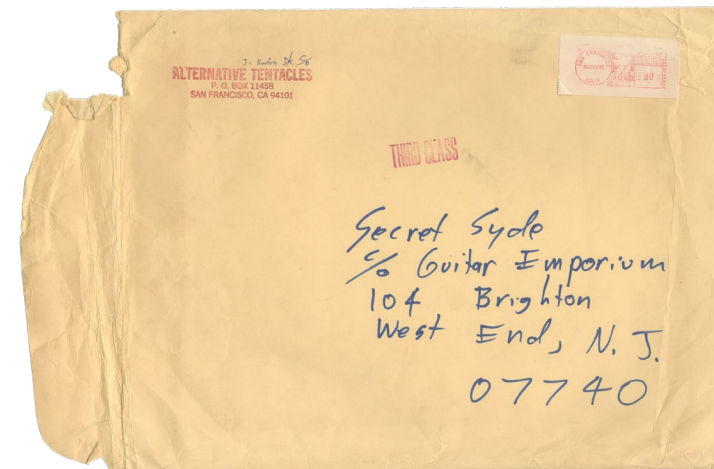 ALTERNATIVE TENTACLES
P. O. BOX 11458
SAN FRANCISCO, CA 94101
THIRD CLASS
Secret Syde
c/o Guitar Emporium
104 Brighton
West End, N. J.
07740